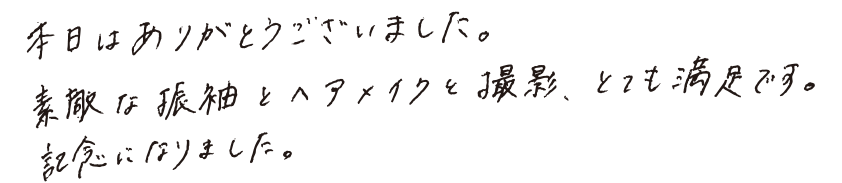 本日はありがとうございました。
素敵な振袖とヘアメイクと撮影、とても満足です。
記念になりました。